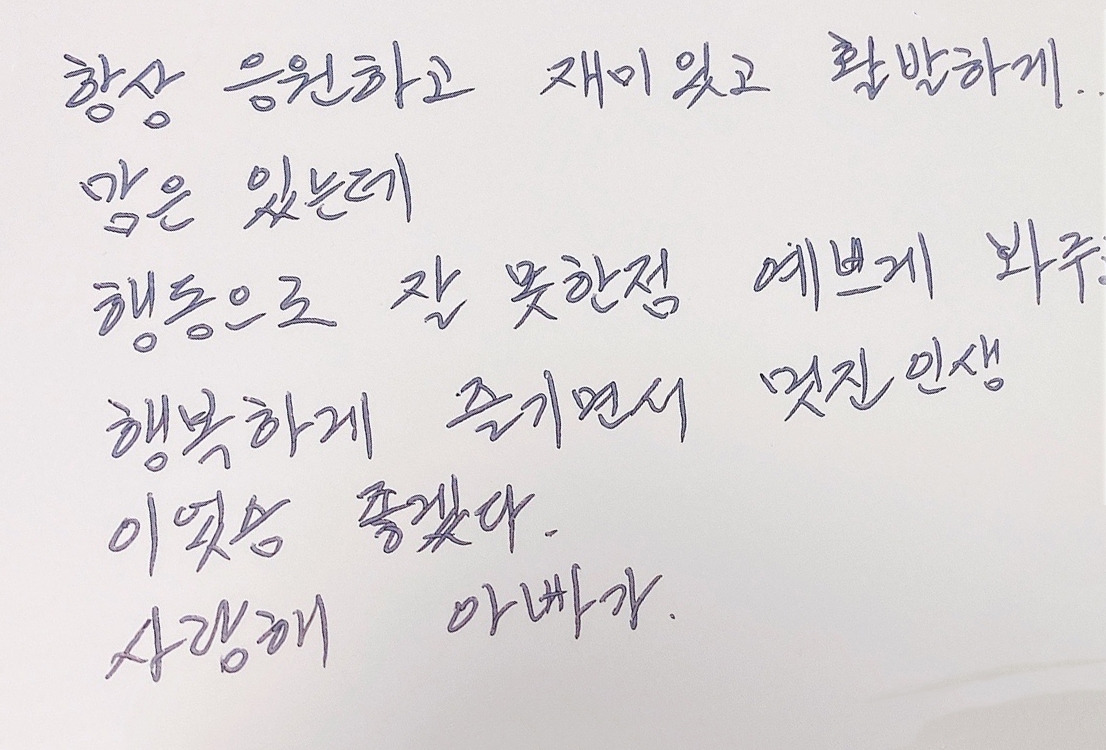 항상 응원하고 재미있고 활발하게..
맘은 있는데
행동으로 잘 못한점 예쁘게 봐주
행복하게 즐기면서 멋진인생
이였슴 좋겠다.
사랑해 아빠가.